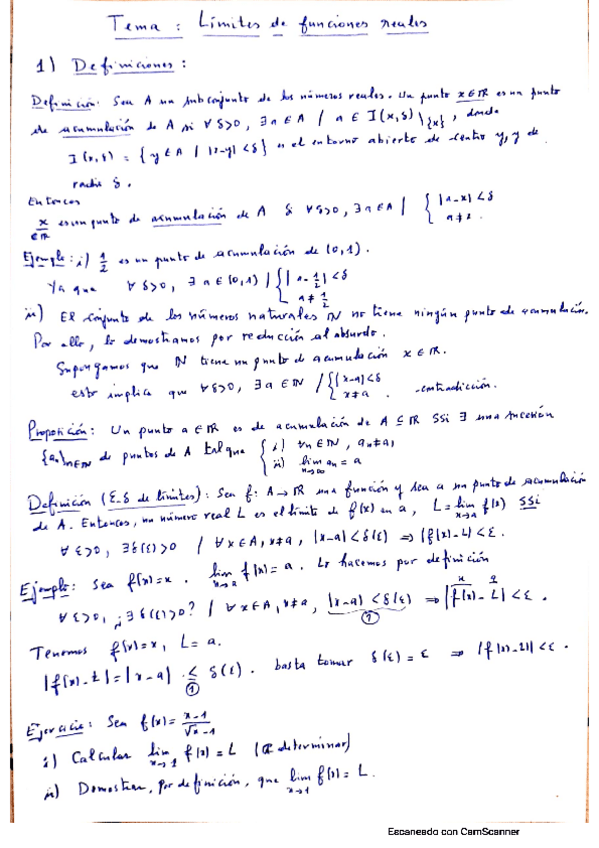 Tema: Límites de funciones reales
1) Definiciones:
Definición: Sea A un subconjunto de los números reales. Un punto x∈ℝ es un punto
de acumulación de A si ∀δ>0, ∃a∈A / a∈I(x,δ)\{x}, donde
I(x,δ) = {y∈A / |x-y|<δ} es el entorno abierto de centro y, y de
radio δ.
Entonces
x∈ℝ es un punto de acumulación de A si ∀δ>0, ∃a∈A / { |a-x|<δ
a≠x.
Ejemplo: i) 1/2 es un punto de acumulación de (0,1).
Ya que ∀δ>0, ∃a∈(0,1) / { |a-1/2|<δ
a≠1/2
ii) El conjunto de los números naturales ℕ no tiene ningún punto de acumulación.
Por ello, lo demostramos por reducción al absurdo.
Supongamos que ℕ tiene un punto de acumulación x∈ℝ.
esto implica que ∀δ>0, ∃a∈ℕ / { |x-a|<δ
x≠a. contradicción.
Proposición: Un punto a∈ℝ es de acumulación de A⊆ℝ SSi ∃ una sucesión
{aₙ}ₙ∈ℕ de puntos de A tal que { i) ∀n∈ℕ, aₙ≠a,
ii) lim n→∞ aₙ = a
Definición (ε-δ de límites): Sea f: A→ℝ una función y sea a un punto de acumulación
de A. Entonces, un número real L es el límite de f(x) en a, L = lim x→a f(x) SSi
∀ε>0, ∃δ(ε)>0 / ∀x∈A, x≠a, |x-a|<δ(ε) ⇒ |f(x)-L|<ε.
Ejemplo: Sea f(x)=x. lim x→a f(x)=a. Lo hacemos por definición
x a
∀ε>0, ¿∃δ(ε)>0? / ∀x∈A, x≠a, |x-a|<δ(ε) ⇒ |f(x)-L|<ε.
①
Tenemos f(x)=x, L=a.
|f(x)-L|=|x-a| ≤ δ(ε). basta tomar δ(ε)=ε ⇒ |f(x)-L|<ε.
①
Ejercicio: Sea f(x) = x-1/√x-1
i) Calcular lim x→1 f(x) = L (a determinar)
ii) Demostrar, por definición, que lim x→1 f(x) = L.
Escaneado con CamScanner